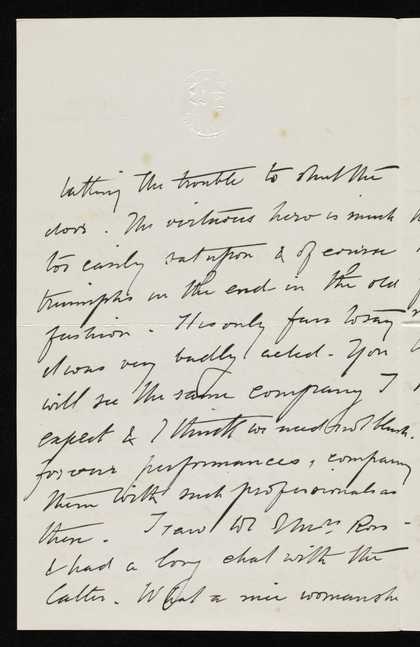 taking the trouble to shut the
door. The virtuous hero is much
too easily sat upon & of course
triumphs in the end in the old
fashion. It is only fair to say
it was very badly acted. You
will see the same company I
expect & I think we need not blush
for our performances, comparing
them with such professionals as
these. I saw Mrs Ross -
& had a long chat with the
latter. What a nice woman she